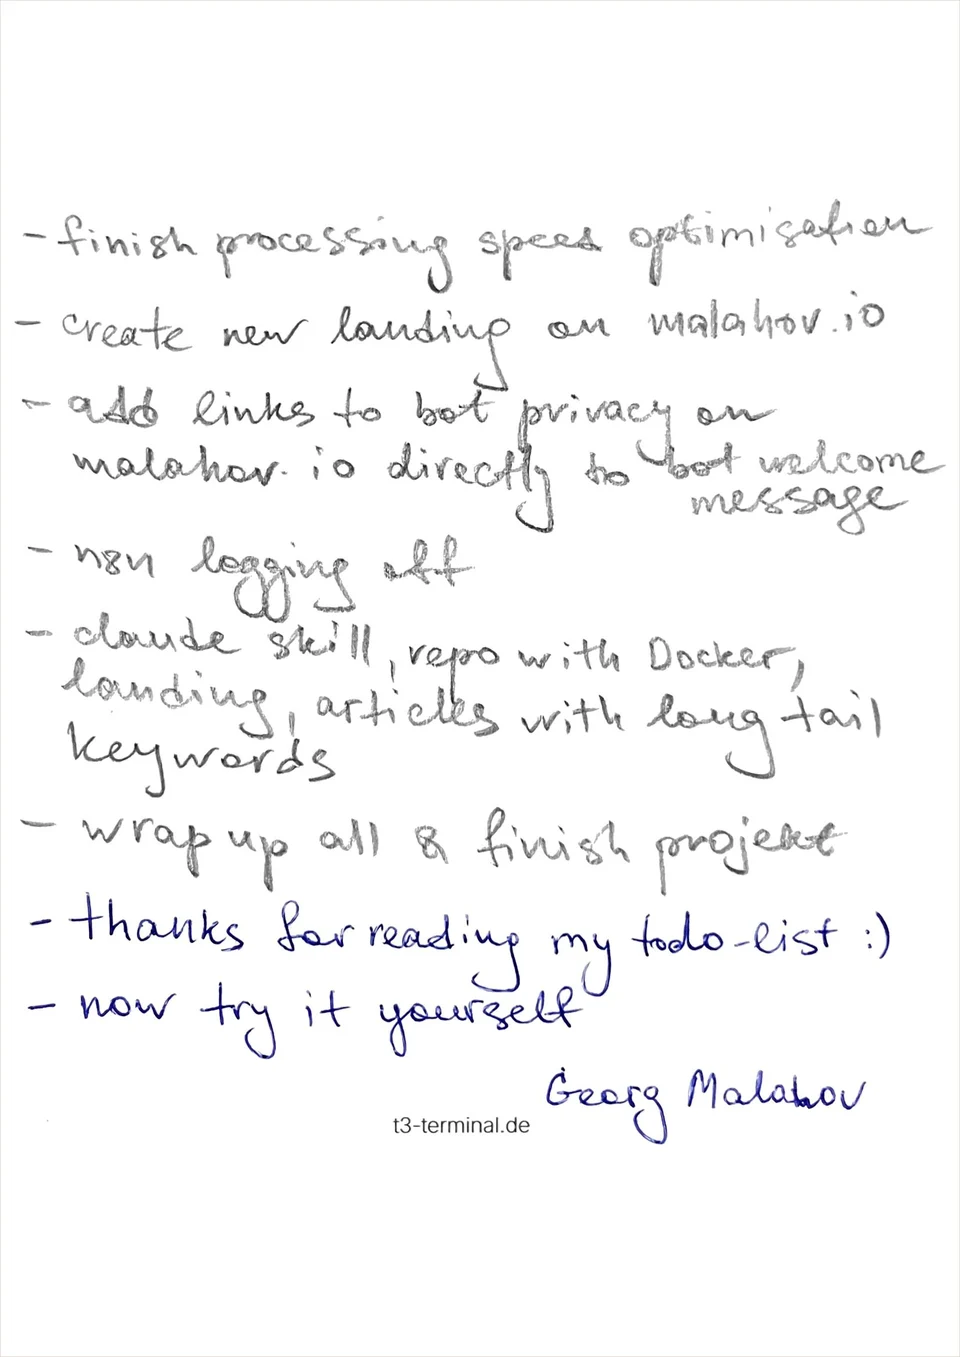 - finish processing speed optimisation
- create new landing on malahov.io
- add links to bot privacy on
malahov.io directly to bot welcome
message
- n8n logging off
- claude skill, repo with Docker,
landing, articles with long tail
keywords
- wrap up all & finish projekt
- thanks for reading my todo-list :)
- now try it yourself
Georg Malahov
t3-terminal.de